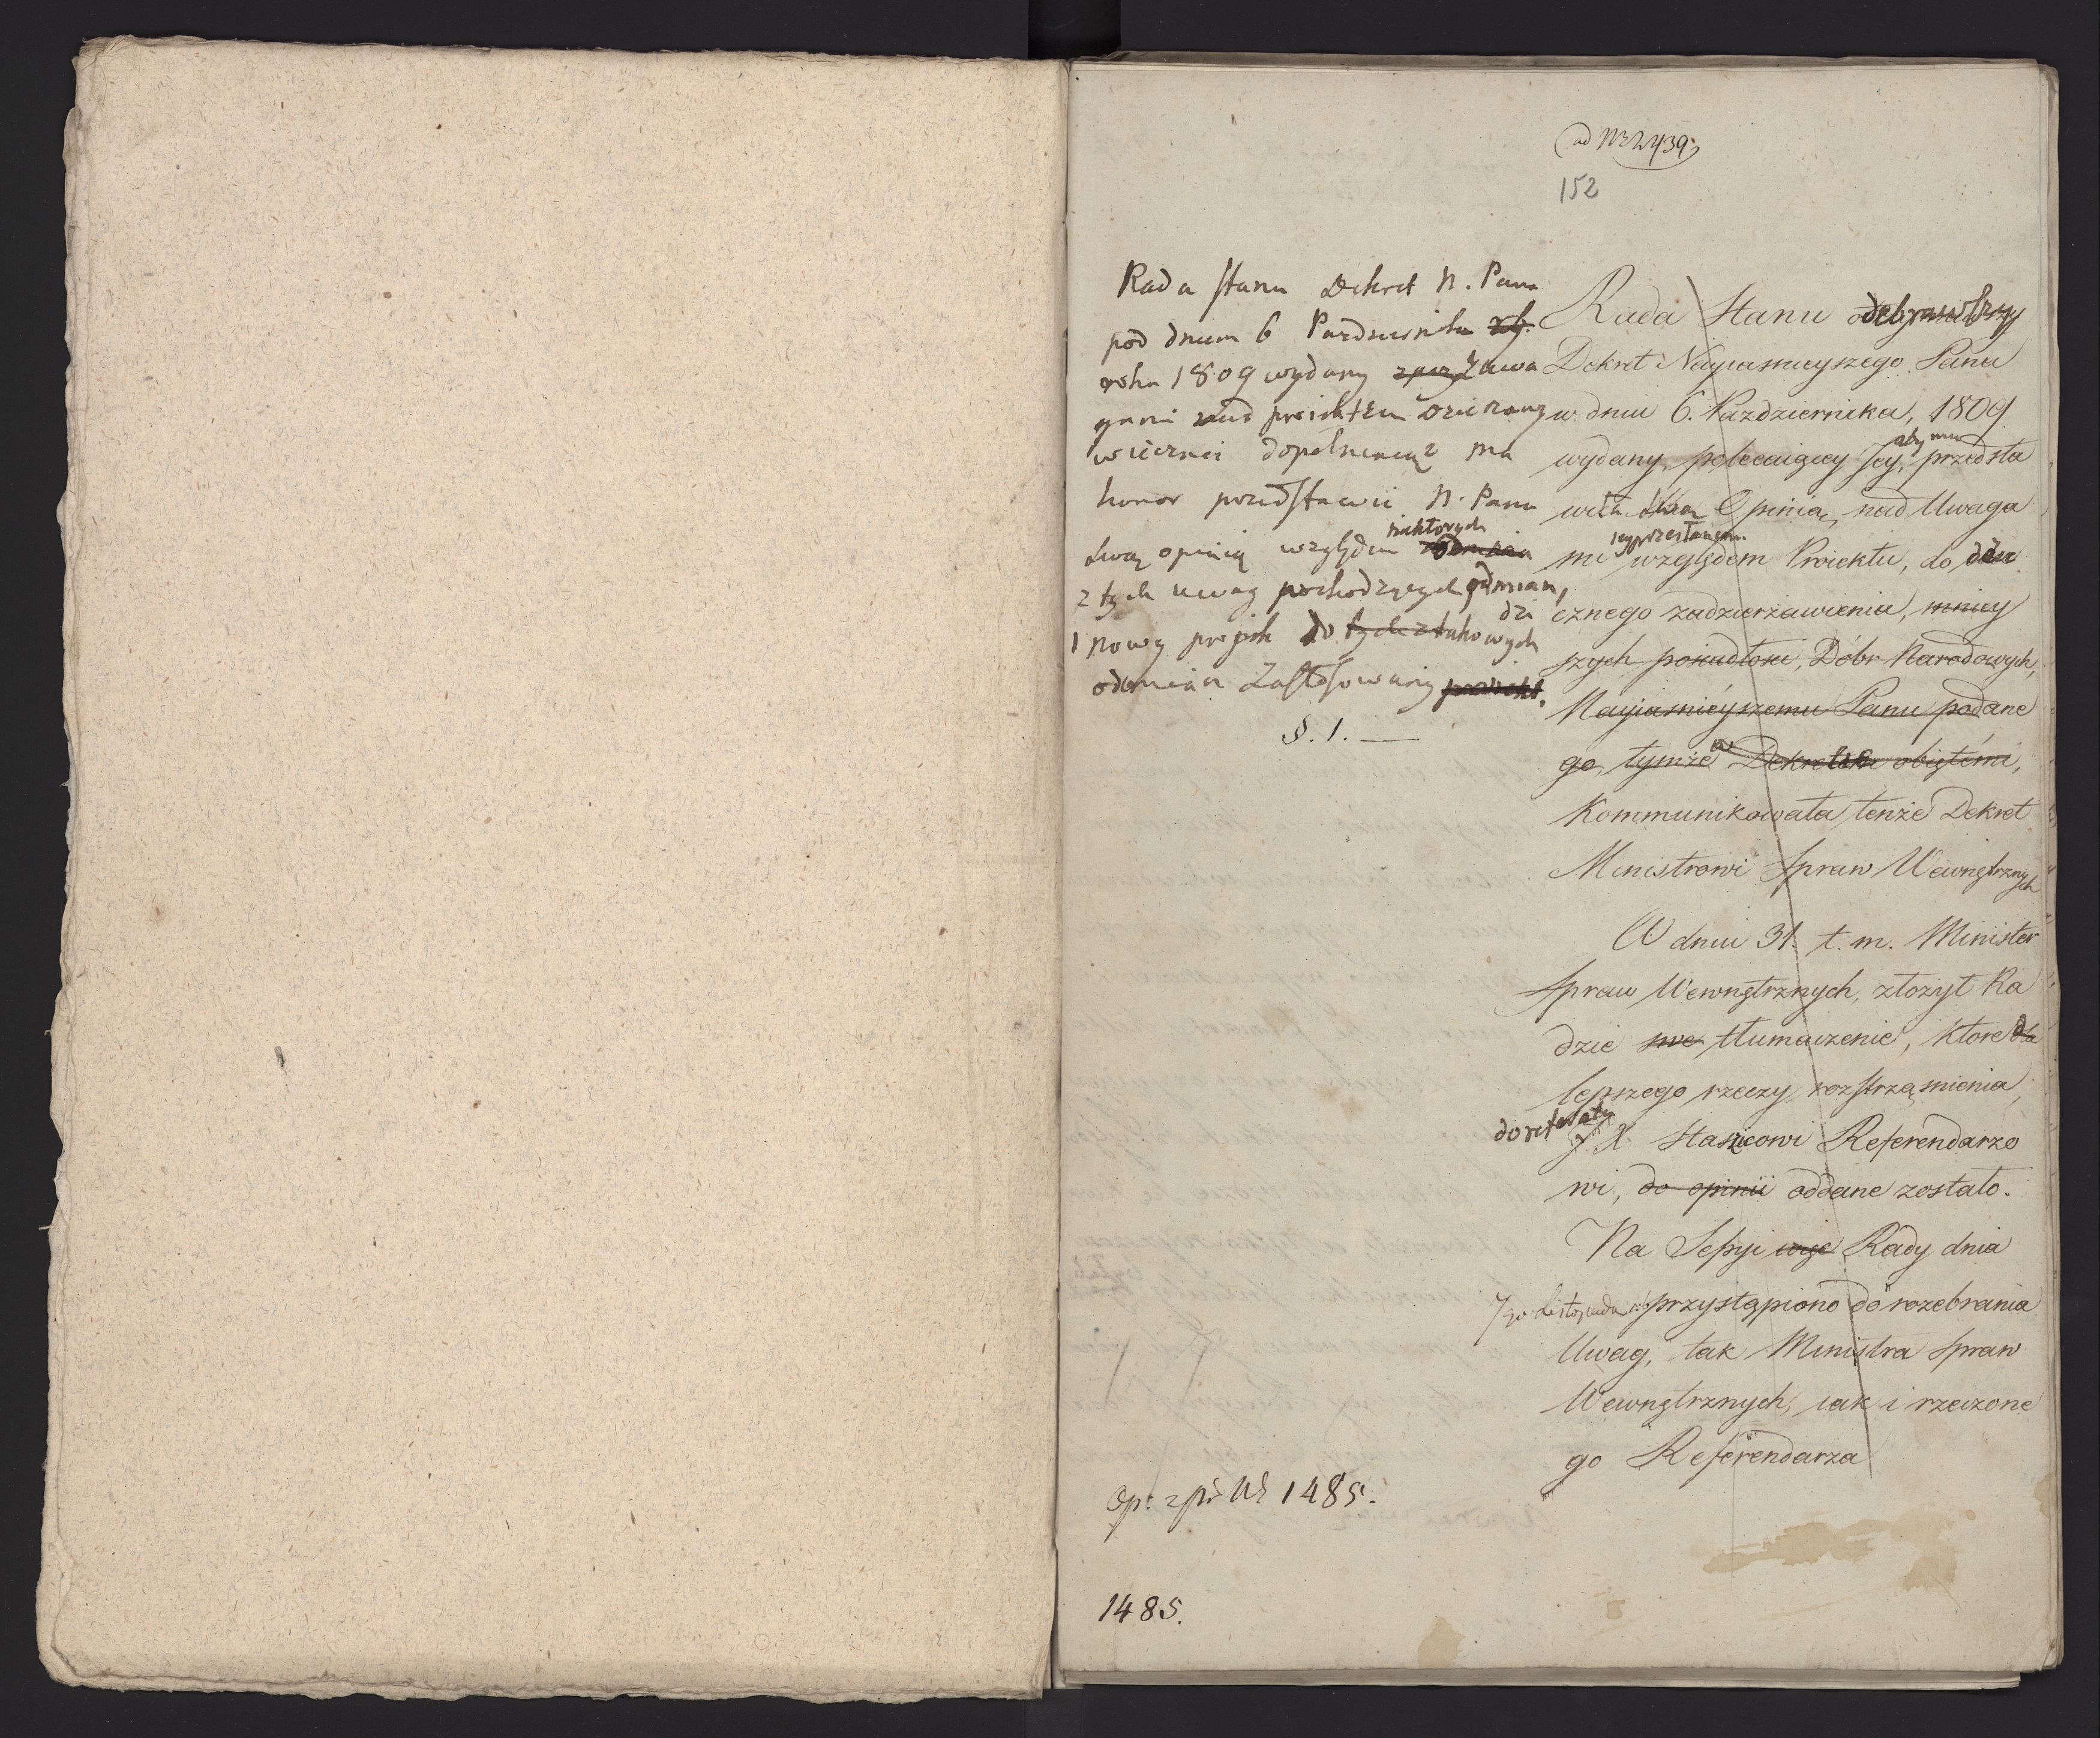 ad Nr 2439.
152
Rada Stanu Dekret N. Pana
pod dniem 6 Pazdziernika
roku 1809 wydany z uwa
gami nad proiektem dzierzawy
wieczney dopełniaiąc ma
honor przedstawić N. Panu
swą opinią względem niektorych
z tych uwag pochodzących odmian,
i nowy projekt do takowych
odmian zastosowany
§. 1. —
Rada Stanu odebrawszy
Dekret Nayiasnieyszego Pana
w dniu 6. Pazdziernika, 1809
wydany, polecaiący Jey, aby mu przedsta
wiła Opinią, nad Uwaga
mi względem Proiektu, do dzie
dzi
cznego zadzierżawienia, mniey
szych posiadłości, Dóbr Narodowych,
Nayiasnieyszemu Panu podane
go, tymże w Dekretem obiętémi,
Kommunikowała tenże Dekret
Ministrowi Spraw Wewnętrznych
W dniu 31. t. m. Minister
Spraw Wewnętrznych, złożył Ra
dzie swe tłumaczenie, ktore dla
lepszego rzeczy rozstrząsnienia,
do referatu
J. X. Staszicowi Referendarzo
wi, do opinii oddane zostało.
Na Sessyi więc Rady dnia
7go Listopada przystąpiono do rozebrania
Uwag, tak Ministra Spraw
Wewnętrznych, iak i rzeczone
go Referendarza
Op: z pr Nr 1485.
1485.